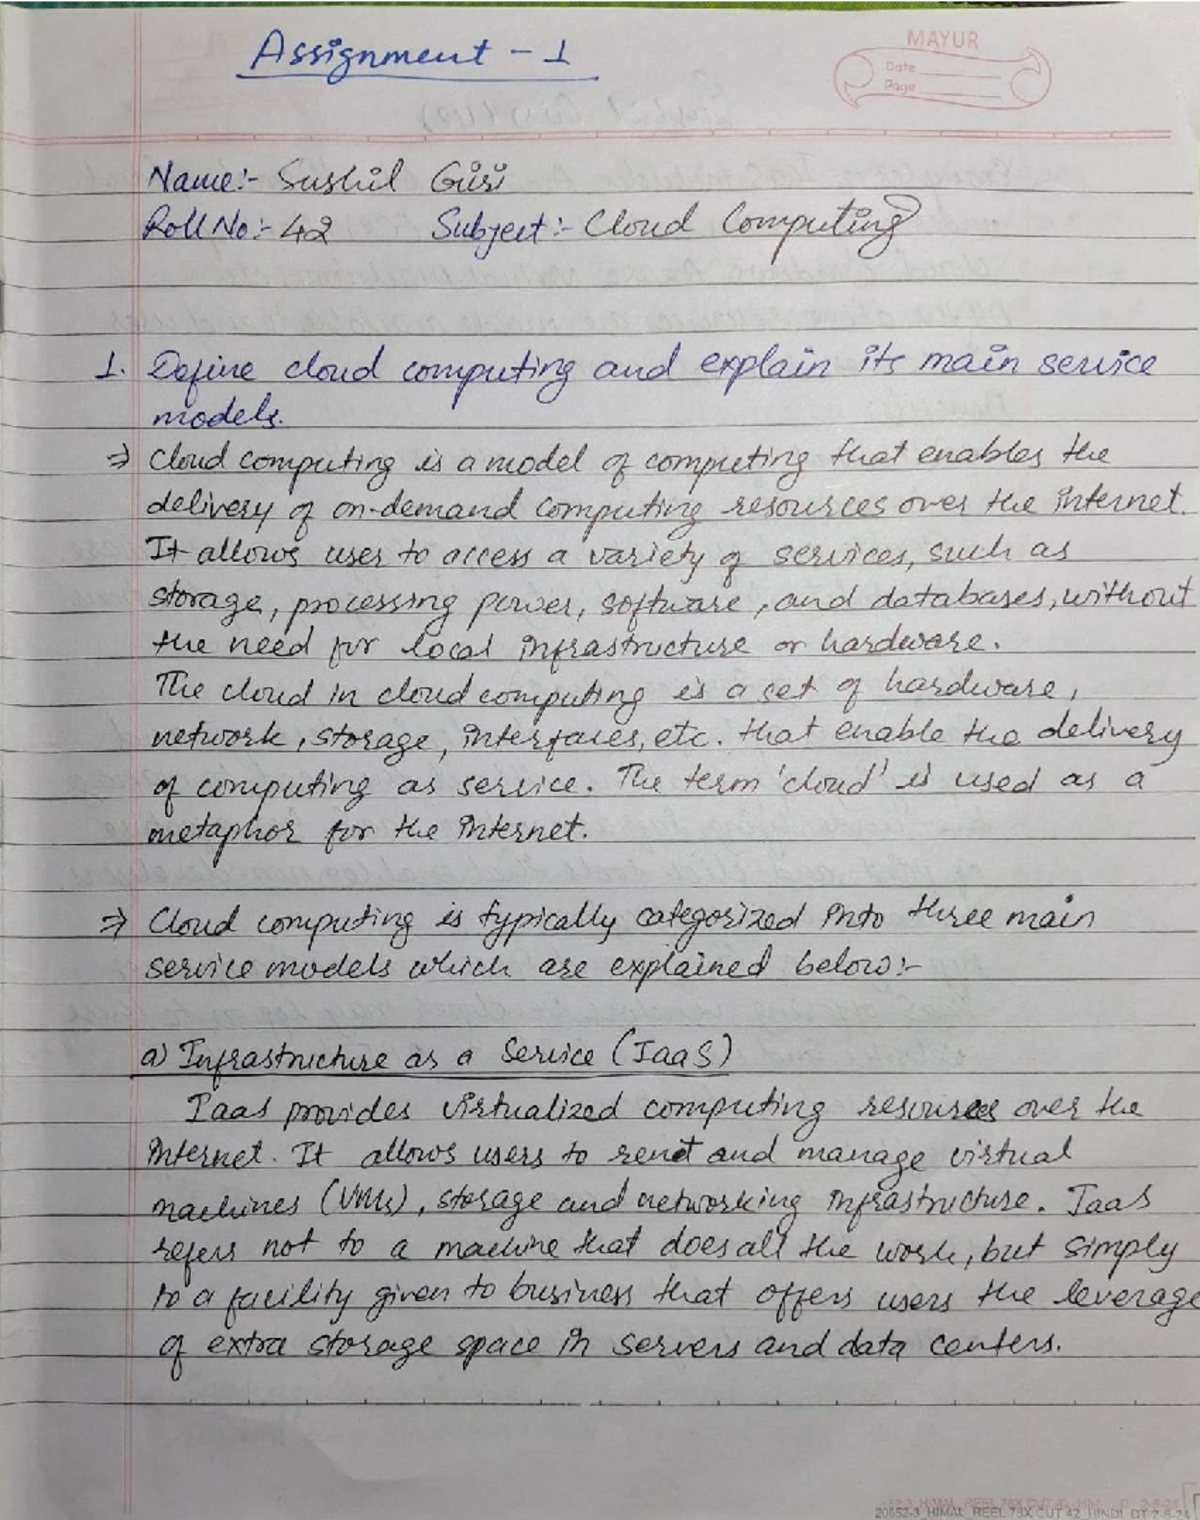 Assignment - 1
MAYUR
Date
Page
Name:- Sushil Giri
Roll No:- 42 Subject:- Cloud Computing
1. Define cloud computing and explain its main service
models.
⇒ Cloud computing is a model of computing that enables the
delivery of on-demand computing resources over the internet.
It allows users to access a variety of services, such as
storage, processing power, software, and databases, without
the need for local infrastructure or hardware.
The cloud in cloud computing is a set of hardware,
network, storage, interfaces, etc. that enable the delivery
of computing as service. The term 'cloud' is used as a
metaphor for the internet.
⇒ Cloud computing is typically categorized into three main
service models which are explained below:-
a) Infrastructure as a Service (IaaS)
IaaS provides virtualized computing resources over the
internet. It allows users to rent and manage virtual
machines (VMs), storage and networking infrastructure. IaaS
refers not to a machine that does all the work, but simply
to a facility given to business that offers users the leverage
of extra storage space in servers and data centers.